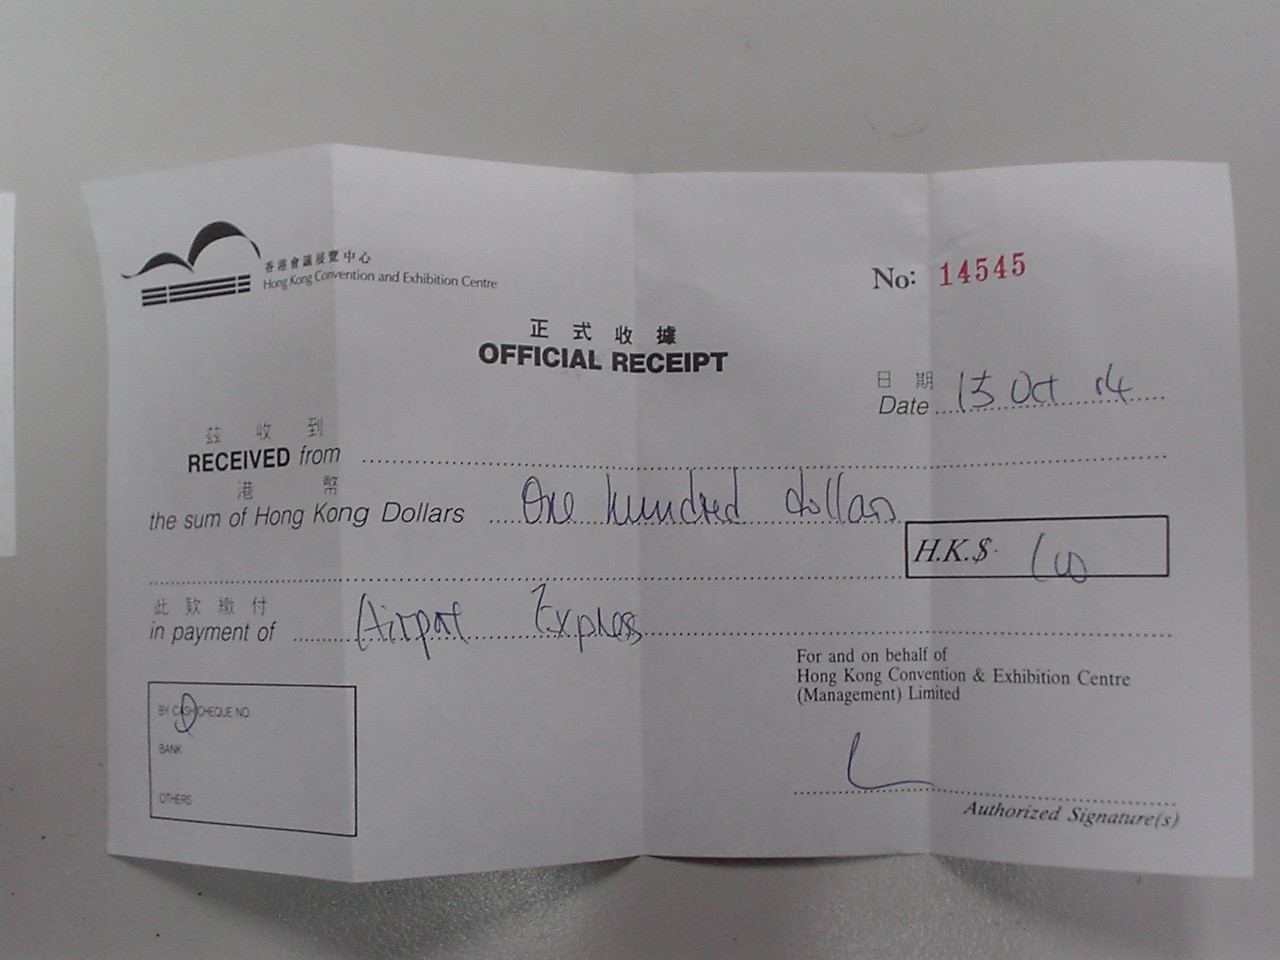 香港會議展覽中心
Hong Kong Convention and Exhibition Centre
No: 14545
正式收據
OFFICIAL RECEIPT
日期
Date 15 Oct 14
茲收到
RECEIVED from
港幣
the sum of Hong Kong Dollars One hundred dollars
H.K.$ 100
此款繳付
in payment of Airport Express
For and on behalf of
Hong Kong Convention & Exhibition Centre
(Management) Limited
BY CASH/CHEQUE NO.
BANK
OTHERS
Authorized Signature(s)